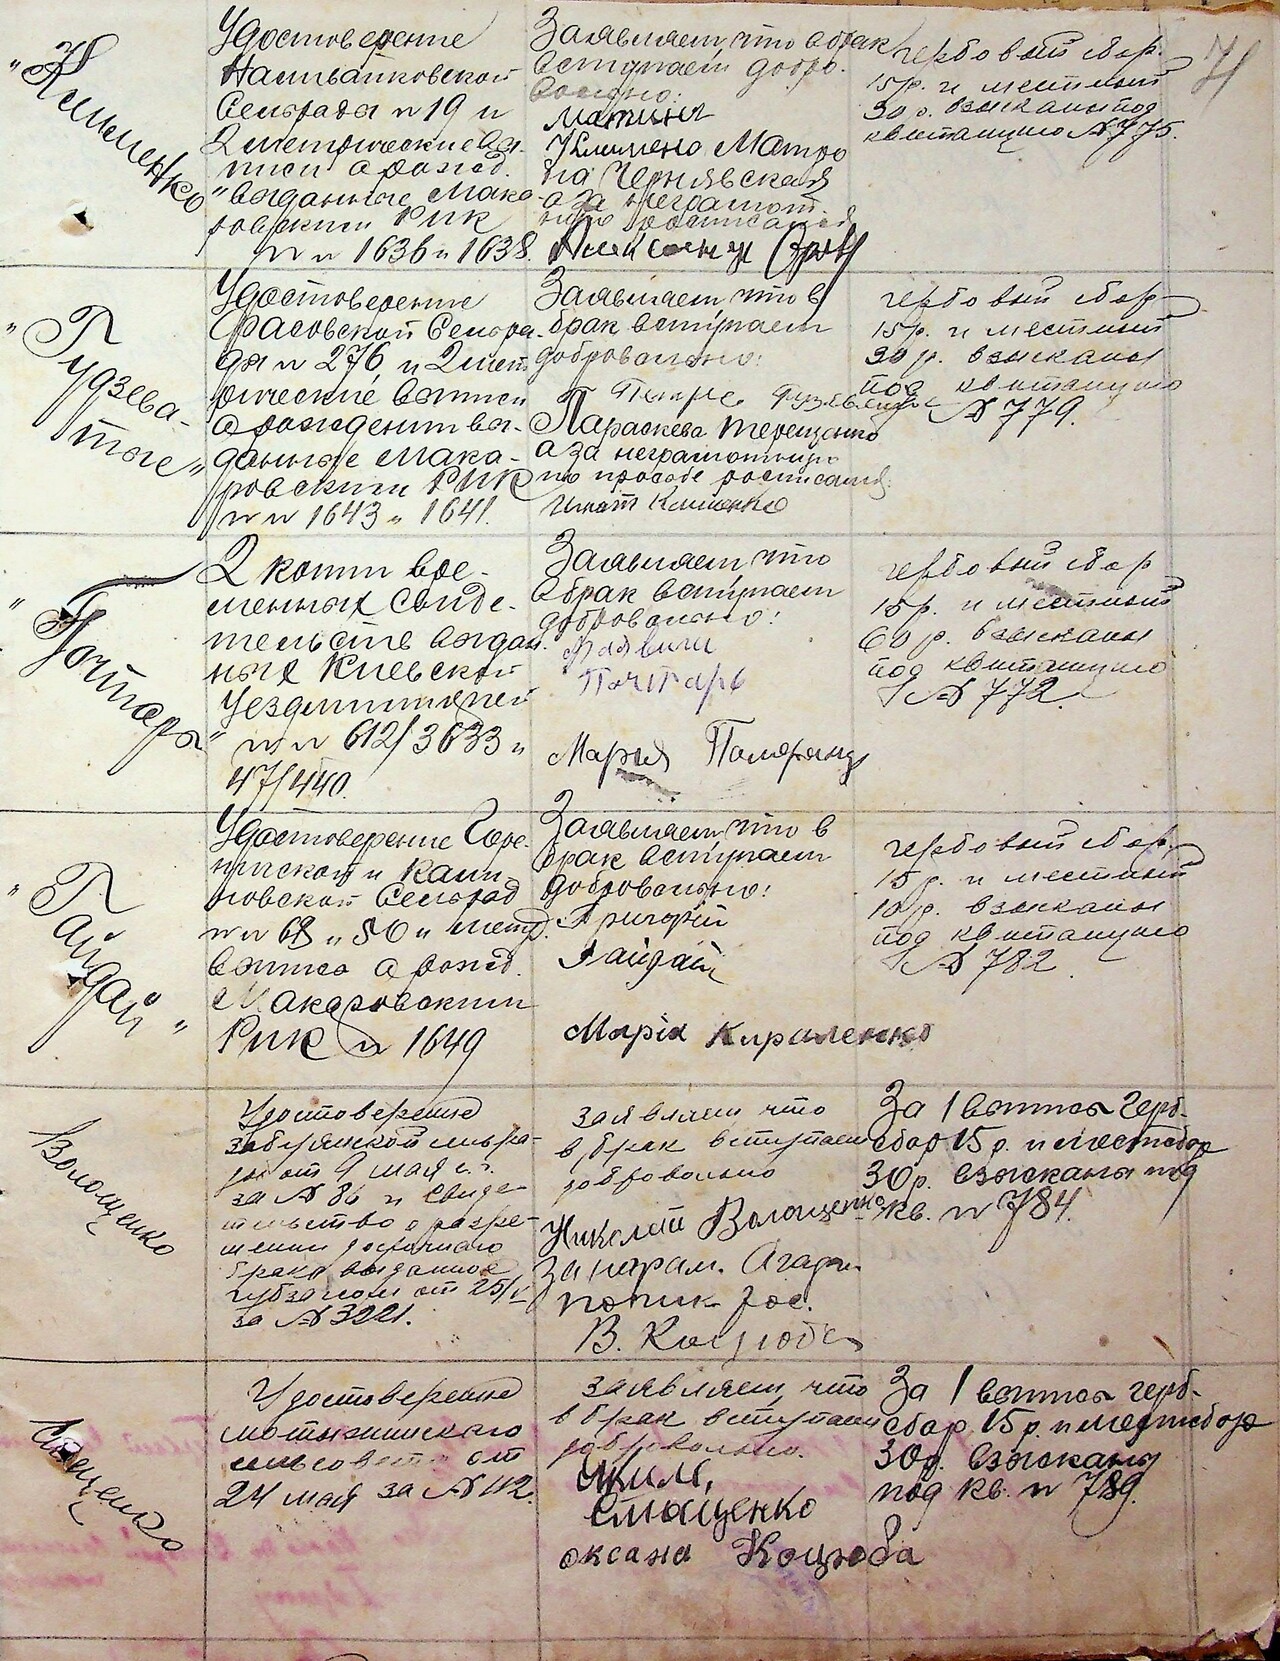 71
„Клименко"
Удостоверение
Наливайковской
Сельрады № 19 и
2 метрические вы-
писи о рожд.
выданные Мака-
ровским РИК
№ № 1636 и 1638.
Заявляем, что в брак
вступаем добро-
вольно:
Клименко Матро
на Чернявская
а за неграмот-
ную росписался
гербовый сбор
15 р. и местный
30 р. взысканы под
квитанцию № 775.
„Гудзева-
тые"
Удостоверение
Фасовской Сельра-
ды № 276 и 2 мет
рические выписи
о рождении вы-
данные Мака-
ровским РИК
№ № 1643 и 1641.
Заявляем, что в
брак вступаем
добровольно:
Параскева Терещенко
а за неграмотную
по просьбе росписался
Игнат Клименко
гербовый сбор
15 р. и местный
30 р. взысканы
под квитанцию
№ 779.
„Почтарь"
2 копии вре-
менных свиде-
тельств выдан
ных Киевской
Уездмилицией
№ № 612/3633 и
47/440.
Заявляем, что
в брак вступаем
добровольно:
Почтарь
Мария
гербовый сбор
15 р. и местный
60 р. взысканы
под квитанцию
№ 772.
„Гайдай"
Удостоверение Горе-
ничской и Капи-
товской Сельрад
№ № 68 и 50 и метр.
выпись о рожд.
Макаровский
РИК № 1649
Заявляем, что в
брак вступаем
добровольно:
Григорий
Гайдай
Марія Кириленко
гербовый сбор
15 р. и местный
10 р. взысканы
под квитанцию
№ 782.
Волощенко
Удостоверение
Забуянской сельра-
ды от 9 мая с. г.
за № 86 и свиде-
тельство о разре-
шении досрочного
брака выданное
от 25/V
за № 3221.
заявляем что
в брак вступаем
добровольно
Николай Волощенко
За неграм. Агафи
рос.
В. Коцюба
За 1 выпись герб.
сбор 15 р. и местсбор
30 р. взысканы под
кв. № 784.
Слющенко
Удостоверение
мотыжинского
сельсовета от
24 мая за № 112.
заявляем, что
в брак вступаем
добровольно.
Яким
оксана Коцюба
За 1 выпись герб.
сбор 15 р. и местсбор
30 р. взысканы
под кв. № 789.